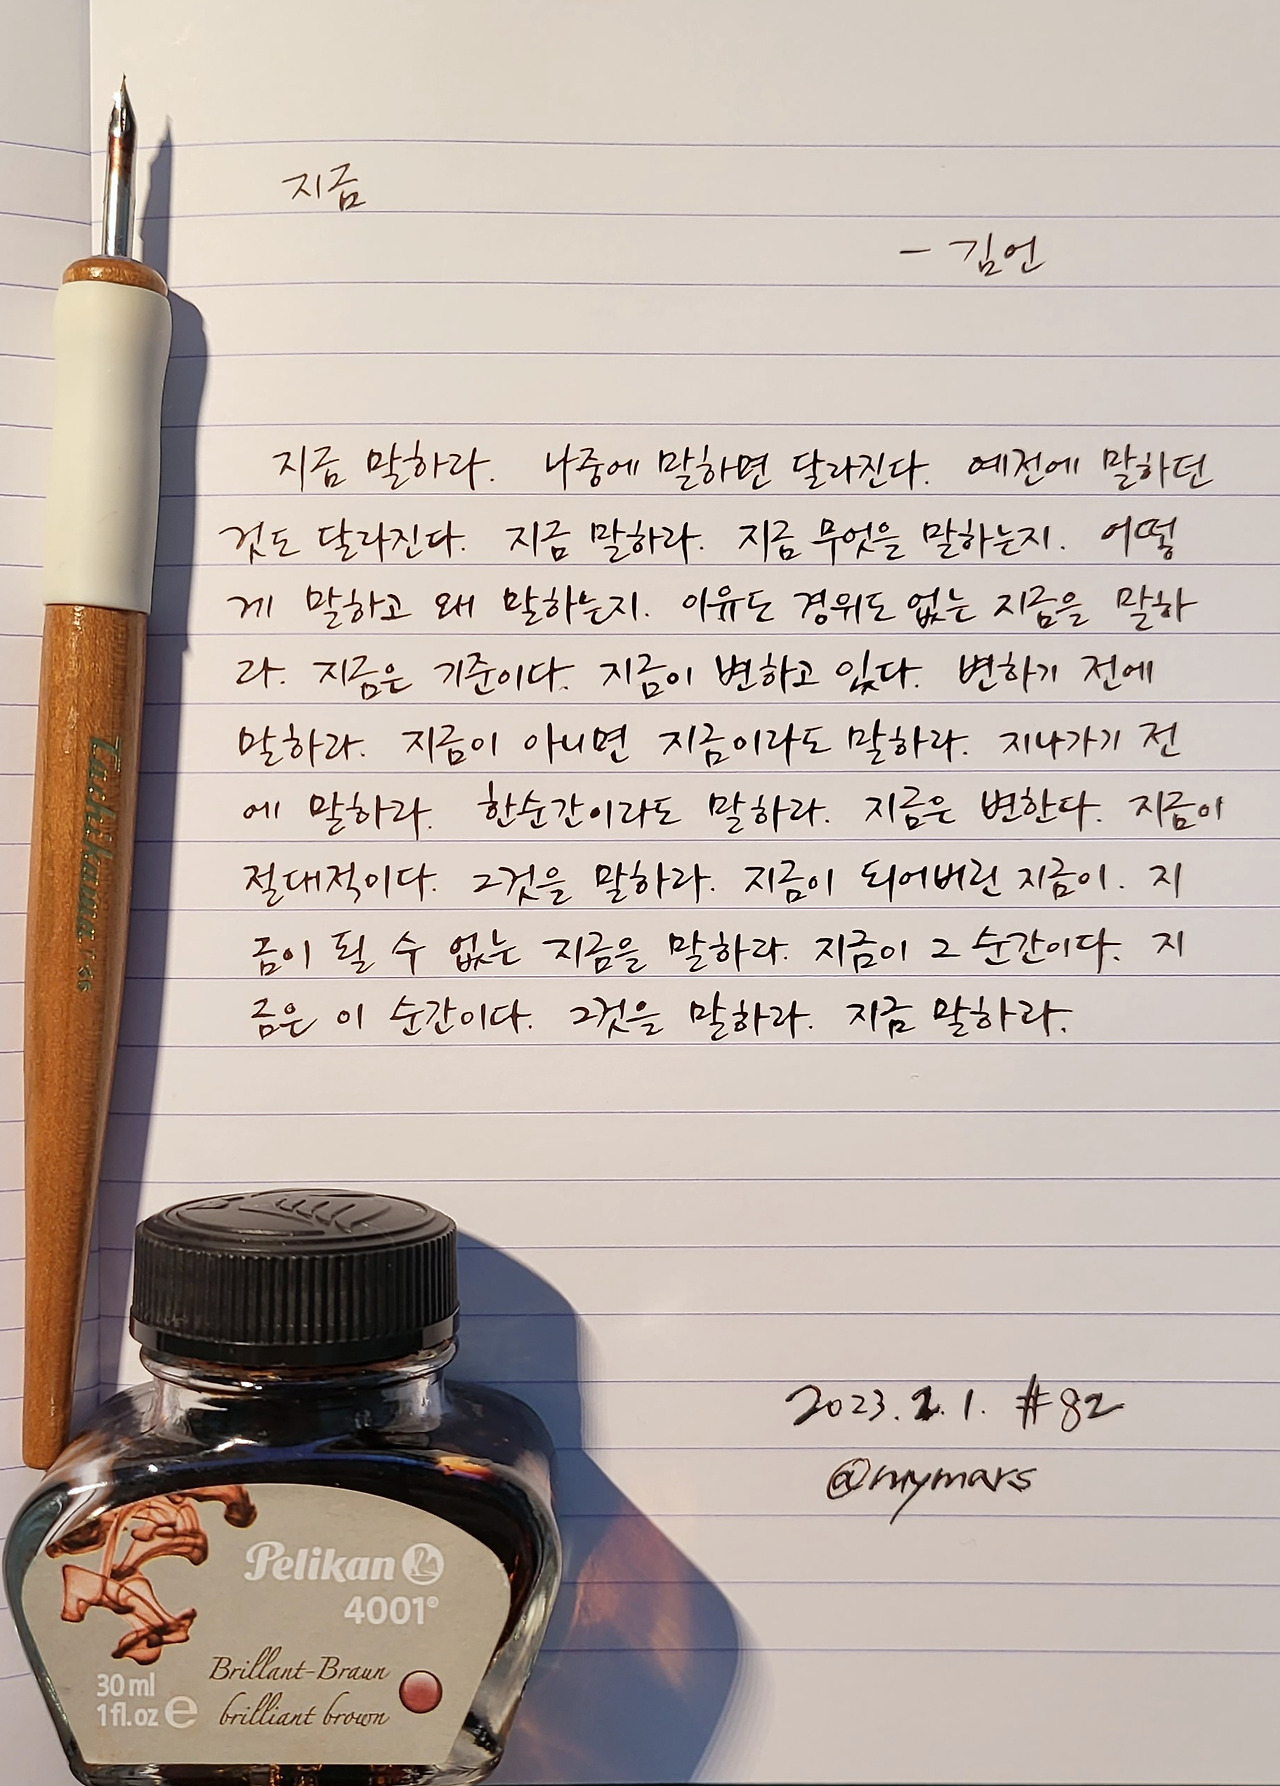 지금
- 김언
지금 말하라. 나중에 말하면 달라진다. 예전에 말하던
것도 달라진다. 지금 말하라. 지금 무엇을 말하는지. 어떻
게 말하고 왜 말하는지. 이유도 경위도 없는 지금을 말하
라. 지금은 기준이다. 지금이 변하고 있다. 변하기 전에
말하라. 지금이 아니면 지금이라도 말하라. 지나가기 전
에 말하라. 한순간이라도 말하라. 지금은 변한다. 지금이
절대적이다. 그것을 말하라. 지금이 되어버린 지금이. 지
금이 될 수 없는 지금을 말하라. 지금이 그 순간이다. 지
금은 이 순간이다. 그것을 말하라. 지금 말하라.
2023. 2. 1. #82
@mymars
Tachikawa
Pelikan
4001®
Brillant-Braun
brilliant brown
30 ml
1 fl.oz e